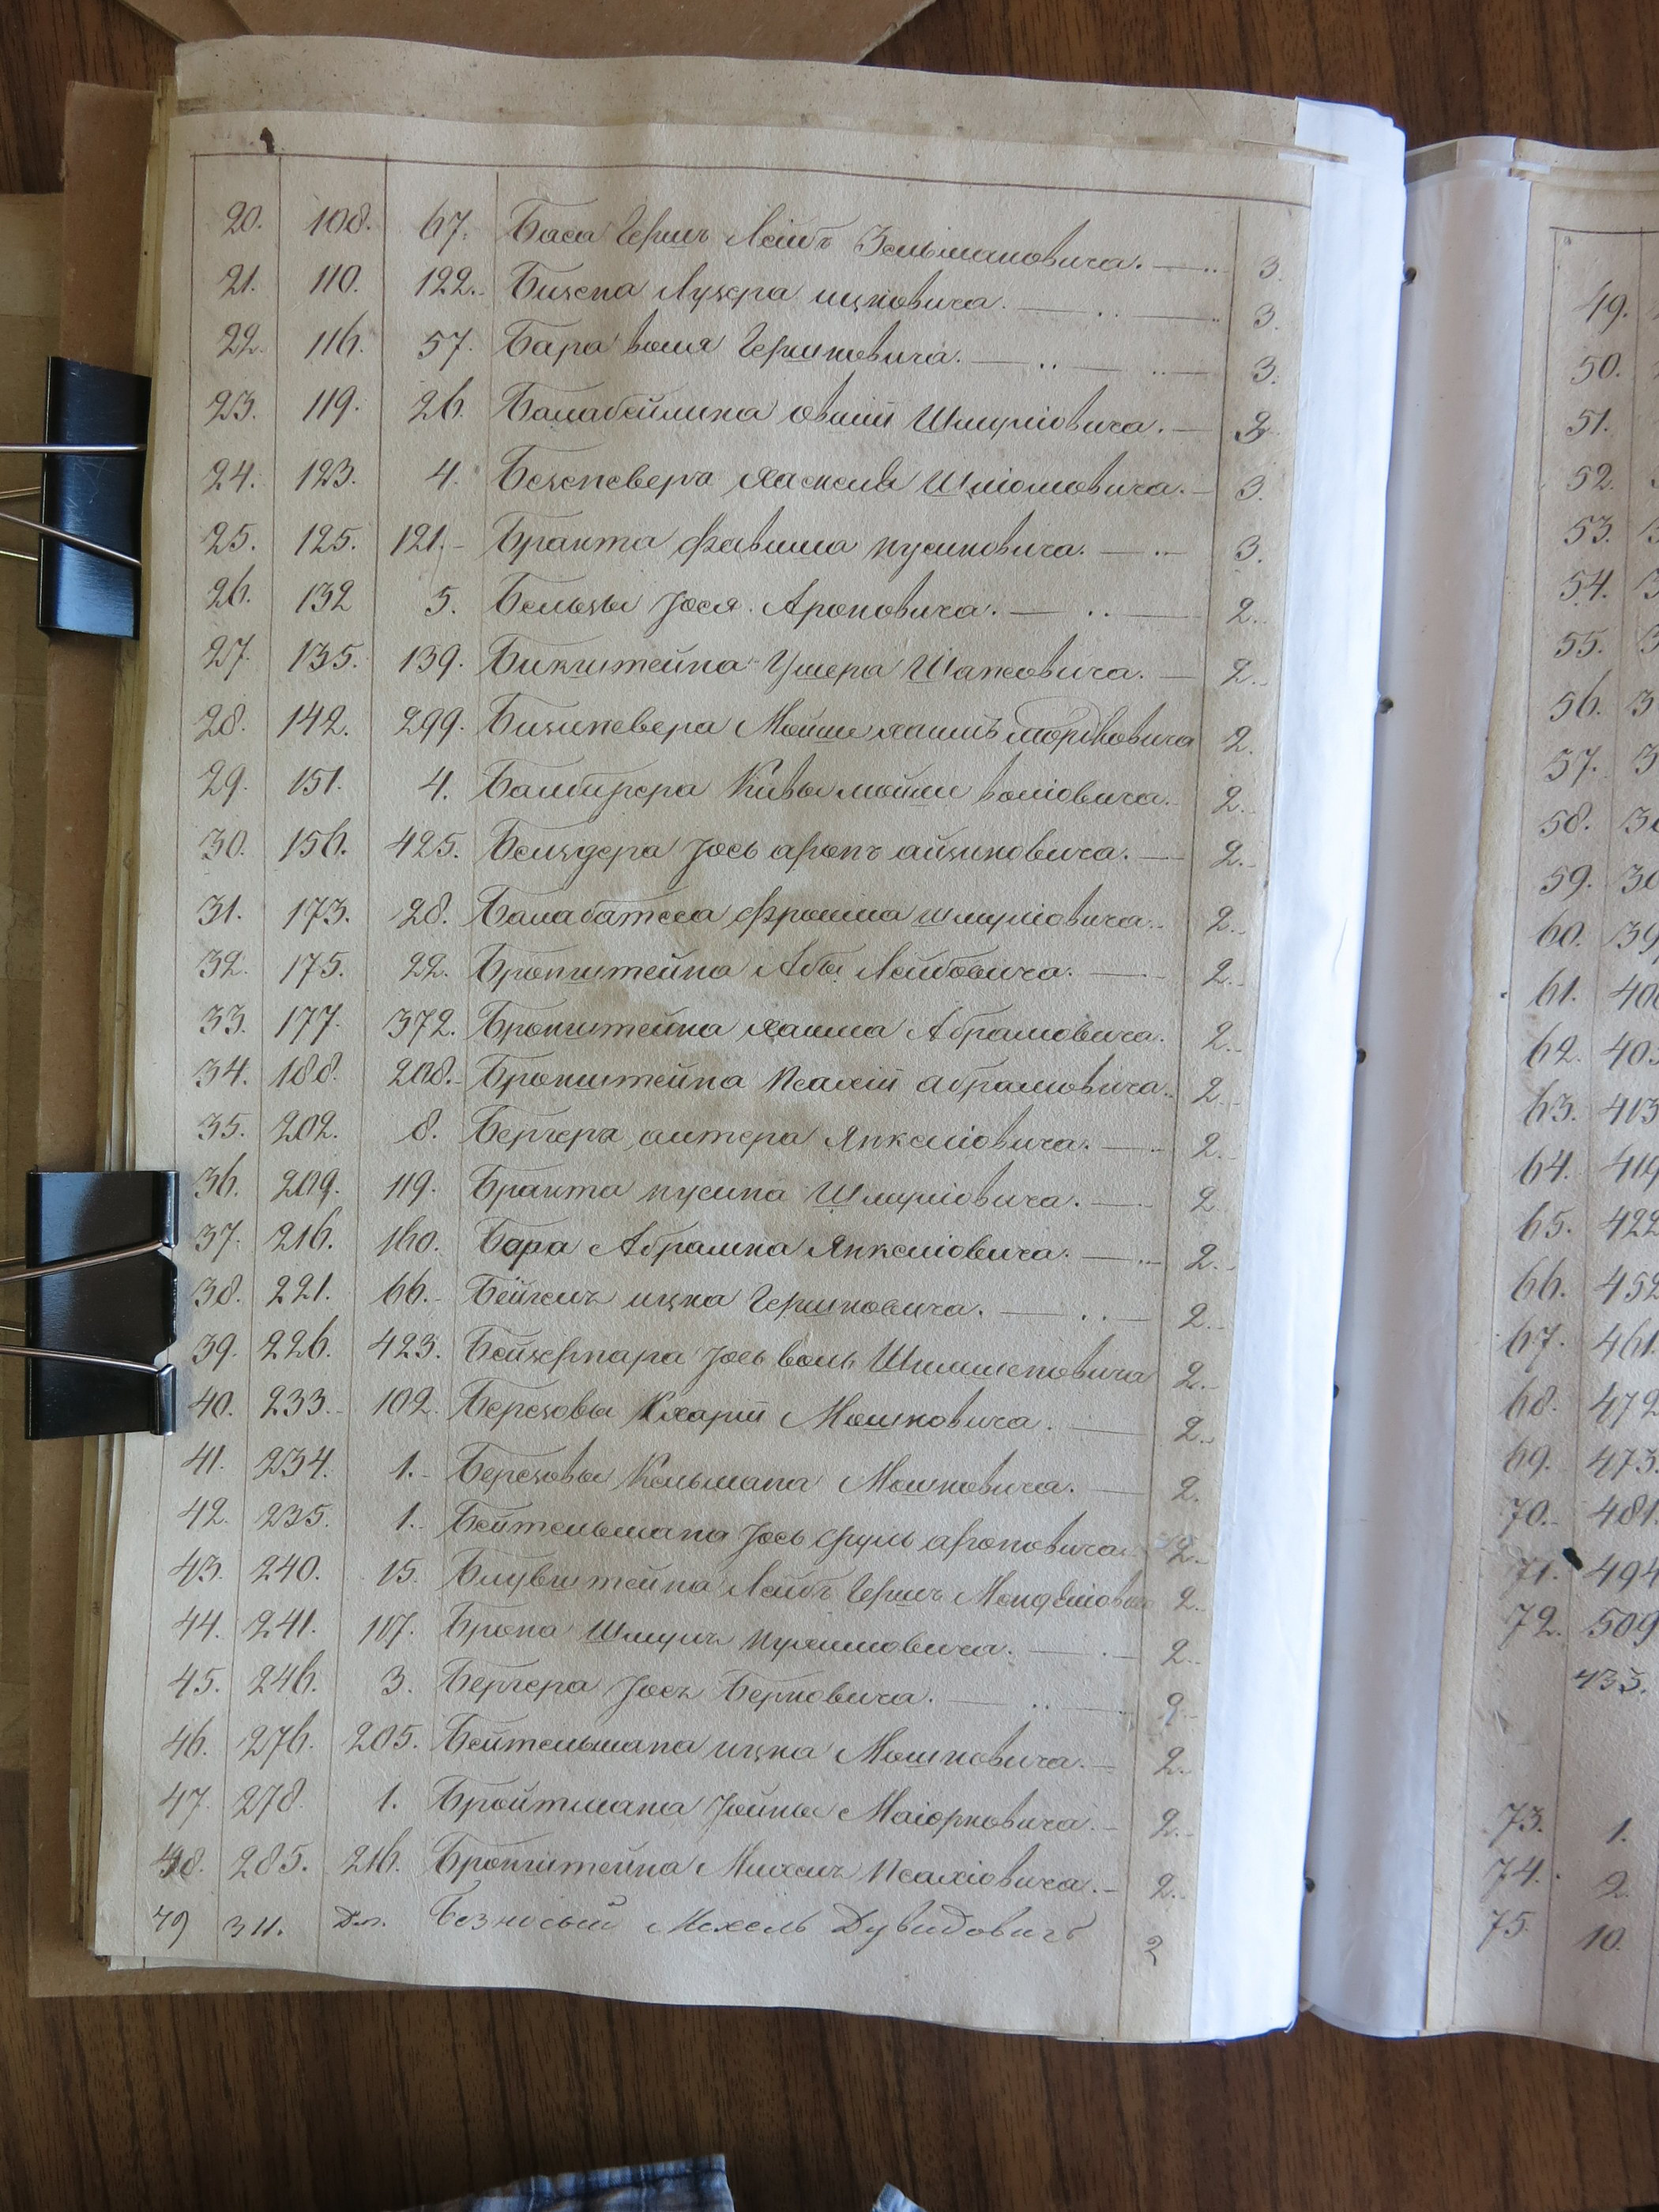 20. 108. 67. Баса Гершъ Лейбъ Зельмановича. 3.
21. 110. 122. Бизена Лузера ицковича. 3.
22. 116. 57. Бара воля Гершковича. 3.
23. 119. 26. Шмулiовича. 2
24. 123. 4. Хаскеля Шлiомовича. 3.
25. 125. 121. Бранта Фавиша нусиновича. 3.
26. 132 5. Бельзы Iося Ароновича. 2.
27. 135. 139. Бикштейна Ушера Шапсовича. 2.
28. 142. 299. Мойше хаимъ мордковича 2.
29. 151. 4. Кивы мойше волiовича. 2.
30. 156. 425. Бендера Iось аронъ айзиковича. 2.
31. 173. 28. Фроима шмулiовича. 2.
32. 175. 22. Бронштейна Абы Лейбовича. 2.
33. 177. 372. Бронштейна хаима Абрамовича. 2.
34. 188. 208. Бронштейна Псахiи абрамовича. 2.
35. 202. 8. Бергера алтера Янкелiовича. 2.
36. 209. 119. Бранта нусина Шмулiовича. 2
37. 216. 160. Бара Абрамка Янкелiовича. 2.
38. 221. 66. ицка Гершковича. 2.
39. 226. 423. Iось воль 2.
40. 233. 102. Березовы Мошковича. 2.
41. 234. 1. Березовы Кельмана Мошковича. 2.
42. 235. 1. Бейтельмана Iось сруль ароновича 2.
43. 240. 15. Блувштейна Лейбъ Гершъ 2.
44. 241. 117. Брона Шмуль 2.
45. 246. 3. Бергера Iось Берковича. 2
46. 276. 205. Бейтельмана ицка Мошковича. 2.
47. 278. 1. Бройтмана Iойны Маiорковича. 2.
48. 285. 216. Бронштейна Михель Псахiовича. 2.
49 311. Безносый Мехель Дувидовичъ 2
49.
50.
51.
52.
53.
54.
55.
56.
57.
58.
59.
60.
61.
62.
63. 413
64. 419
65. 422
66. 452
67. 461.
68. 472
69. 473.
70. 481.
71. 494
72. 509
433.
73. 1.
74. 2
75. 10.